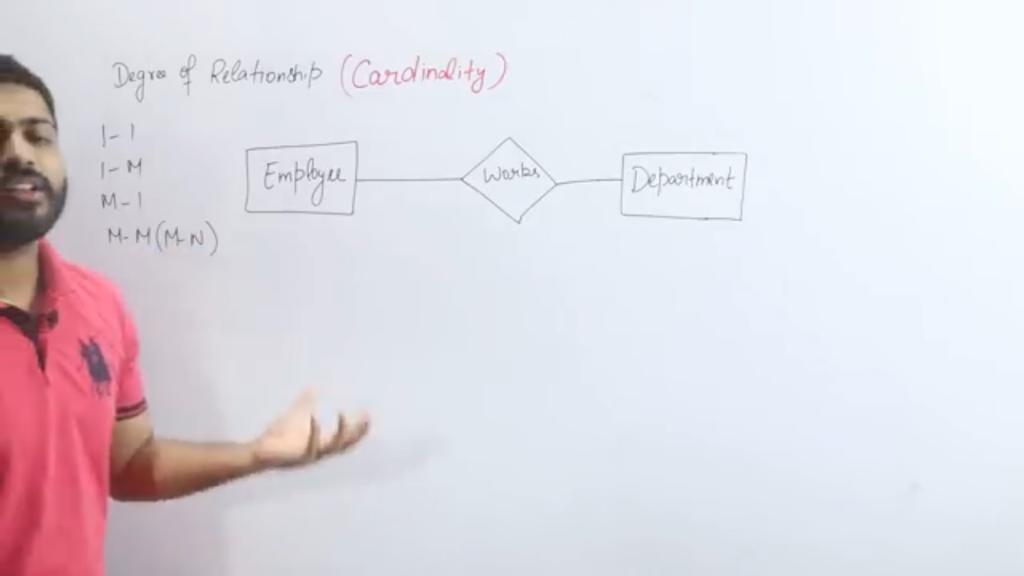 Degree of Relationship (Cardinality)
1-1
1-M
M-1
M-M(M-N)
Employee
Works
Department